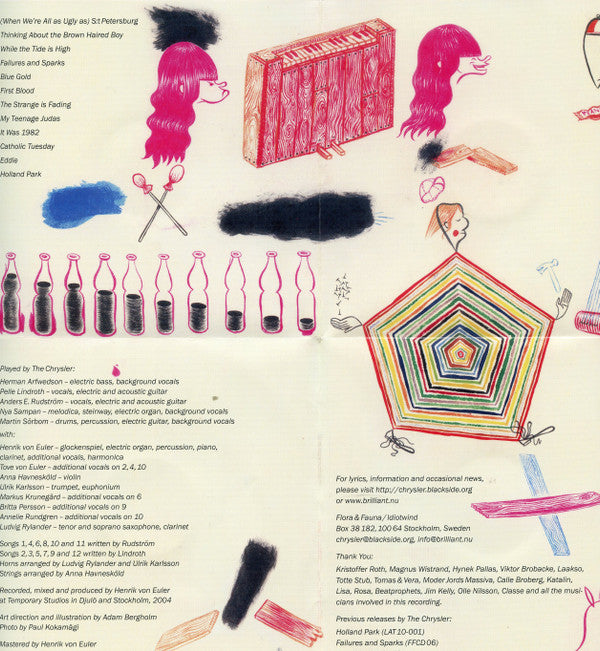 (When We're All as Ugly as) S:t Petersburg
Thinking About the Brown Haired Boy
While the Tide is High
Failures and Sparks
Blue Gold
First Blood
The Strange is Fading
My Teenage Judas
It Was 1982
Catholic Tuesday
Eddie
Holland Park
Played by The Chrysler:
Herman Arfwedson – electric bass, background vocals
Pelle Lindroth – vocals, electric and acoustic guitar
Anders E. Rudström – vocals, electric and acoustic guitar
Nya Sampan – melodica, steinway, electric organ, background vocals
Martin Sörbom – drums, percussion, electric guitar, background vocals
with:
Henrik von Euler – glockenspiel, electric organ, percussion, piano,
clarinet, additional vocals, harmonica
Tove von Euler – additional vocals on 2, 4, 10
Anna Havnesköld – violin
Ulrik Karlsson – trumpet, euphonium
Markus Krunegård – additional vocals on 6
Britta Persson – additional vocals on 9
Annelie Rundgren – additional vocals on 10
Ludvig Rylander – tenor and soprano saxophone, clarinet
Songs 1, 4, 6, 8, 10 and 11 written by Rudström
Songs 2, 3, 5, 7, 9 and 12 written by Lindroth
Horns arranged by Ludvig Rylander and Ulrik Karlsson
Strings arranged by Anna Havnesköld
Recorded, mixed and produced by Henrik von Euler
at Temporary Studios in Djulö and Stockholm, 2004
Art direction and illustration by Adam Bergholm
Photo by Paul Kokamägi
Mastered by Henrik von Euler
For lyrics, information and occasional news,
please visit http://chrysler.blackside.org
or www.brilliant.nu
Flora & Fauna / Idiotwind
Box 38 182, 100 64 Stockholm, Sweden
chrysler@blackside.org, info@brilliant.nu
Thank You:
Kristoffer Roth, Magnus Wistrand, Hynek Pallas, Viktor Brobacke, Laakso,
Totte Stub, Tomas & Vera, Moder Jords Massiva, Calle Broberg, Katalin,
Lisa, Rosa, Beatprophets, Jim Kelly, Olle Nilsson, Classe and all the musi-
cians involved in this recording.
Previous releases by The Chrysler:
Holland Park (LAT 10-001)
Failures and Sparks (FFCD 06)